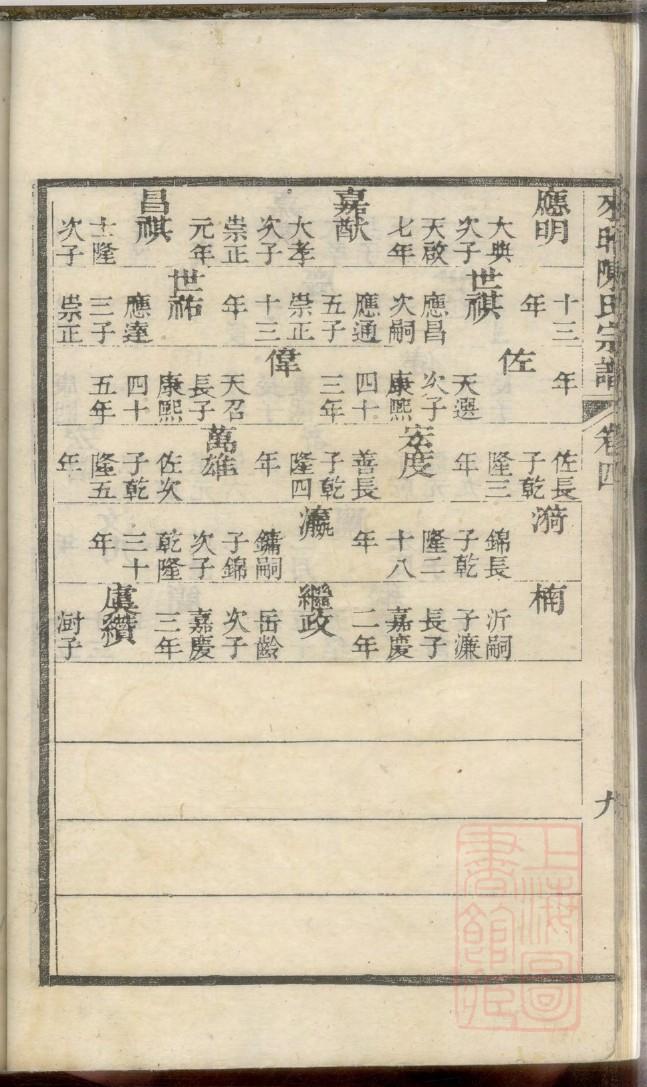 陳氏宗譜
卷四
九
應明
大典
次子
天啟
七年
嘉猷
大孝
次子
崇正
元年
昌祺
士隆
次子
十三
年
世祺
應昌
次嗣
應通
五子
崇正
十三
年
世祐
應達
三子
崇正
年
佐
天選
次子
康熙
四十
三年
偉
天召
長子
康熙
四十
五年
佐長
子乾
隆三
年
宏度
善長
子乾
隆四
年
萬雄
佐次
子乾
隆五
年
漪
錦長
子乾
隆二
十八
年
瀛
鏞嗣
子錦
次子
乾隆
三十
年
楠
沂嗣
子濂
長子
嘉慶
二年
繼政
岳齡
次子
嘉慶
三年
虞纘
澍子
上海圖
書館藏